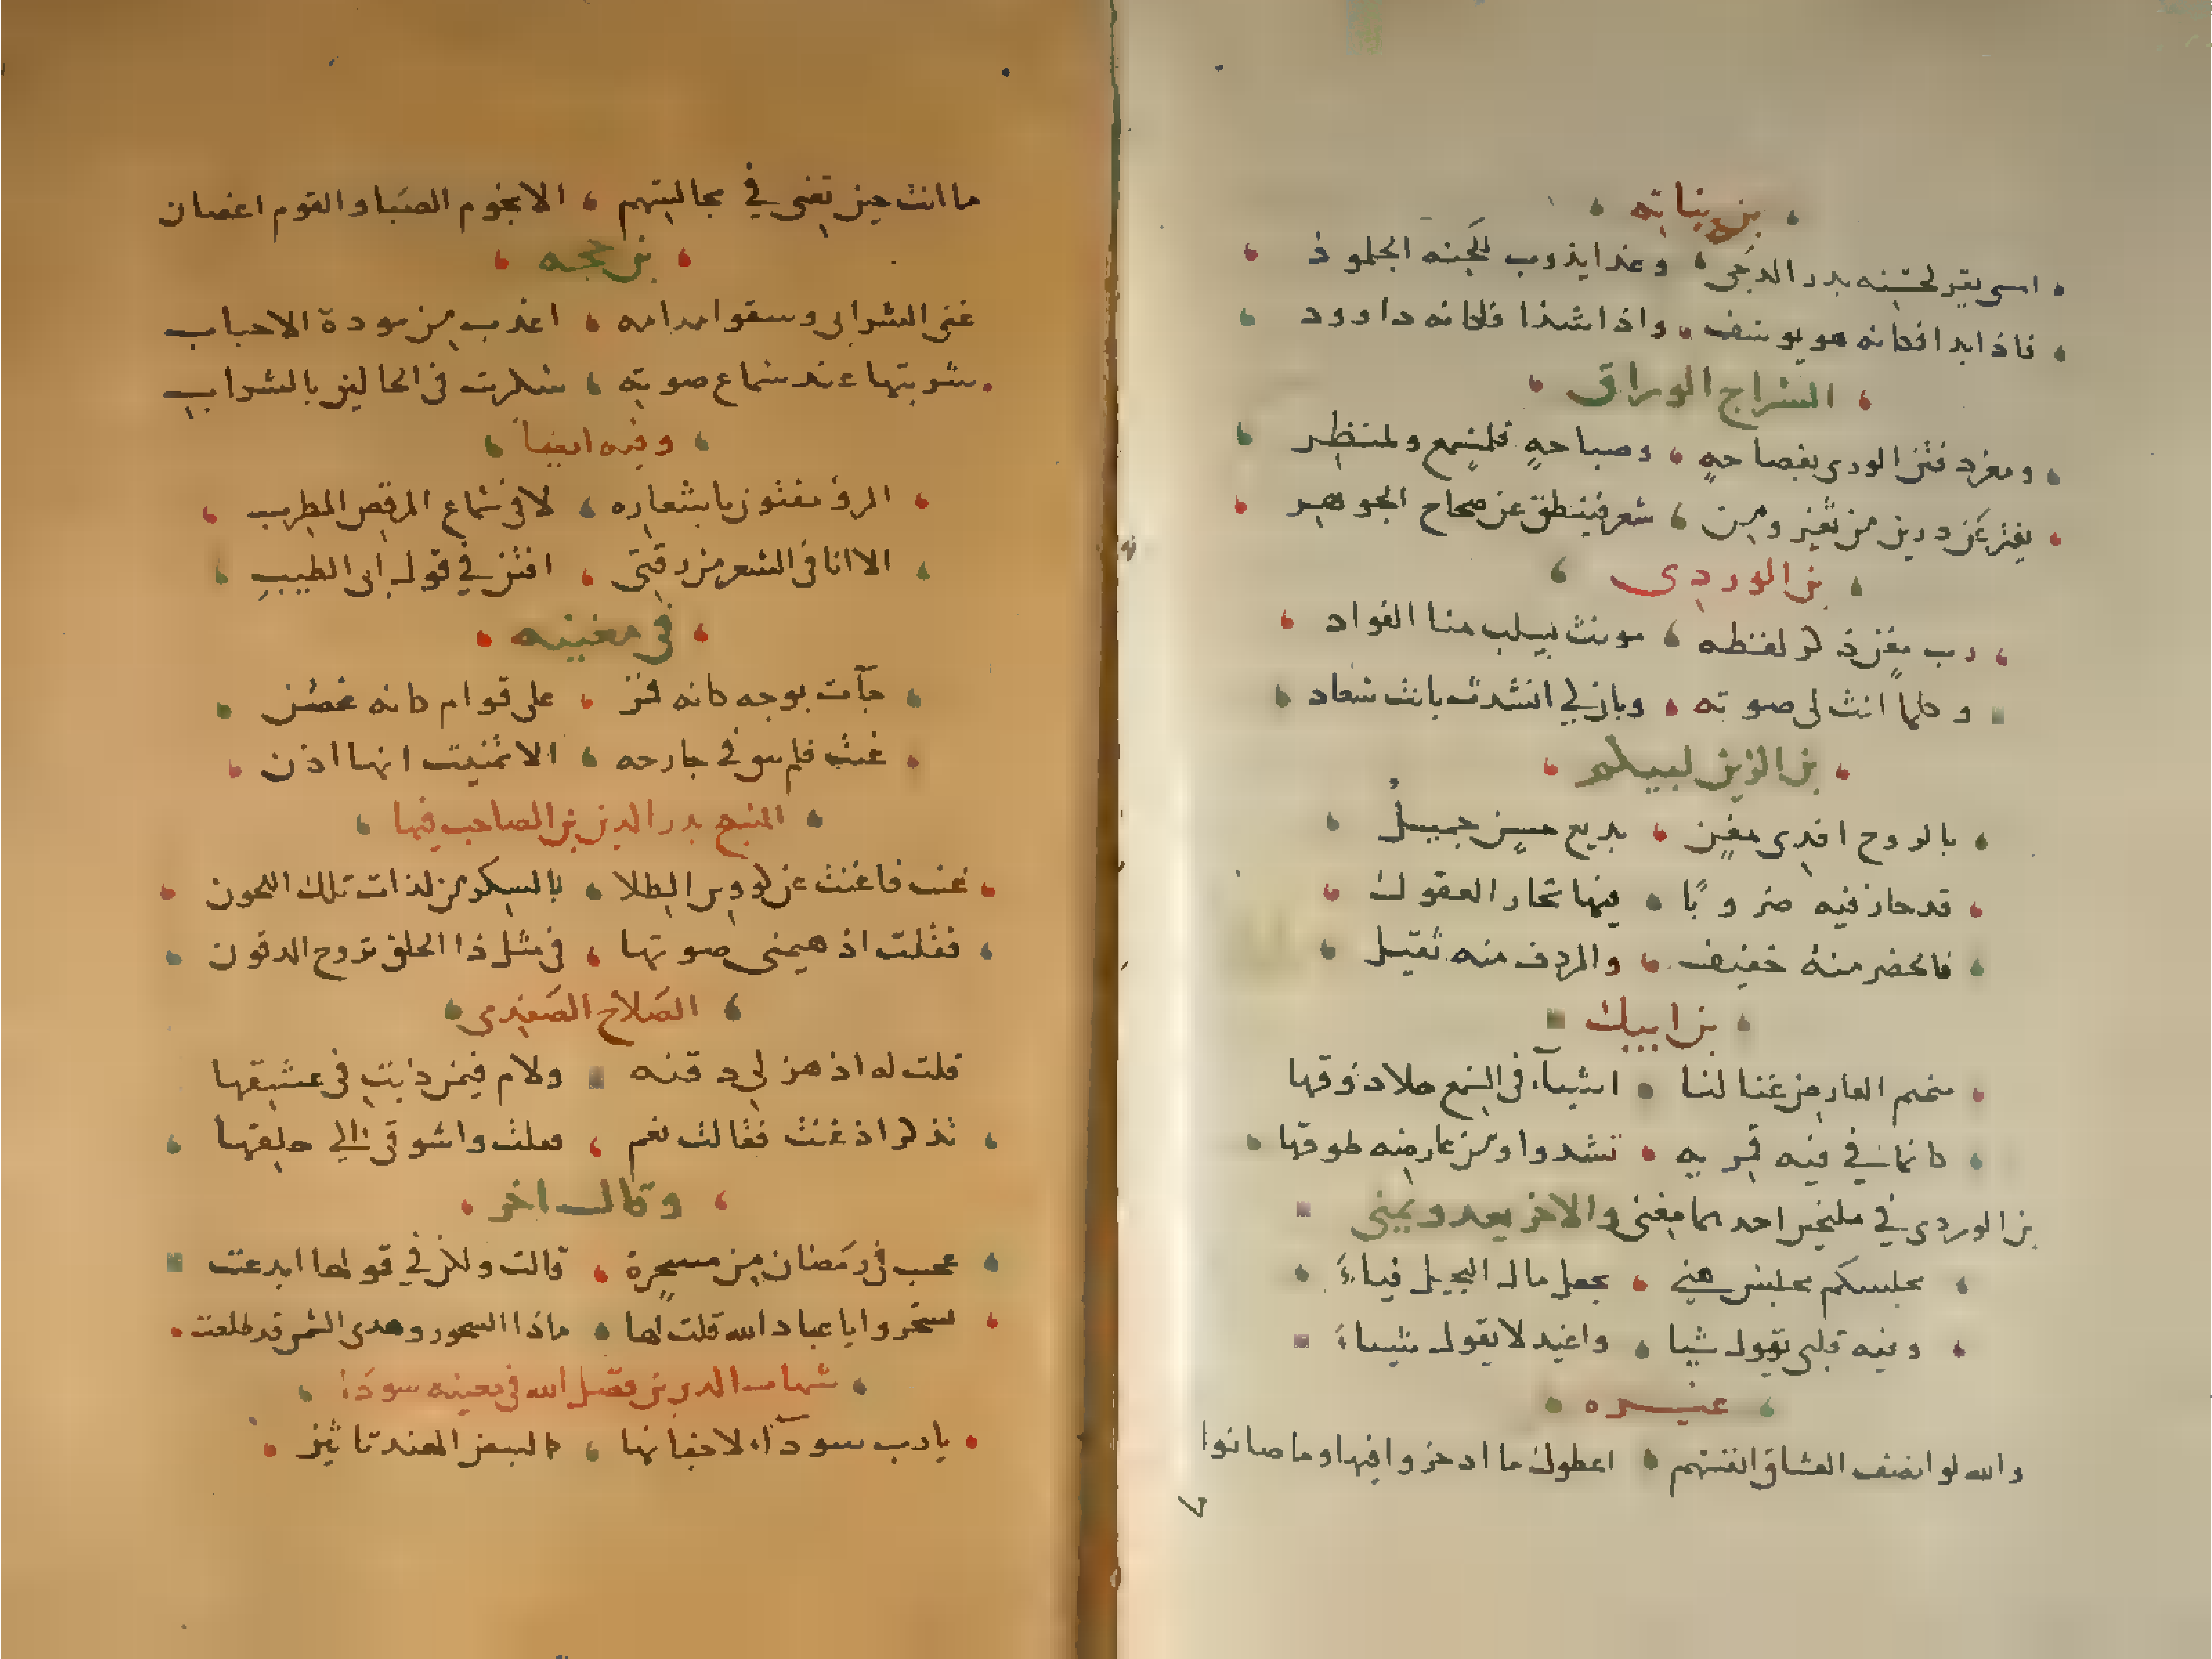 بن نباته
اسى يقر لحسنه بدر الدجى وغدا يذوب للجنه الجلمود
فاذا بدا فكانه هو يوسف واذا شدا فكانه داوود
السراج الوراق
ومغرد فتن الورى بفصاحةٍ وصباحةٍ فلمسمع ولمنظر
يفتر عن دررين من ثغر ومن شعر فينطق عن صحاح الجوهر
بن الوردى
رب مغرد لفظه موتث يسلب منا الفواد
وكلما انث لى صوته وبان لي انشدت بانت سعاد
بن الزين لبيكم
بالروح افدى مغنٍ بديع حسنٍ جميلُ
قد حاز فيه ضروبًا فيها تحار العقول
فالخصر منه خفيف والردف منه ثقيل
بن ايبك
منمنم العارض غنا لنا اشيآء فى السمع حلا ذوقها
كانما في فيه قمريه تشدوا ومن عارضه طوقها
بن الوردى في مليحين احدهما مغنى والاخر يعد ويمنى
مجلسكم مجلس هني يجعل مال البخيل فياءً
وفيه قلبى يقول شيا واغيد لا يقول شياءً
غيره
والله لو انصف العشاق انفسهم اعطوك ما ادخروا فيها وما صانوا
ما انت حين تغنى في مجالسهم الا نجوم الصبا والقوم اغصان
بن حجه
غنى الشرابى وسقوا مدامه اعذب من مودة الاحباب
شربتها عند سماع صوته سكرت فى الحالين بالشراب
وفيه ايضاً
المرؤ مفتون باشعاره لا فى سماع المرقص المطرب
الا انا فى الشعر من رقتى افتن في قول ابى الطيب
فى مغنيه
جآت بوجه كانه قمر على قوام كانه غصن
غنت فلم يبق في جارحه الا تمنيت انها اذن
المنبع بدر الدين بن الصاحب فيها
غنت فاغنت عن كووس الطلا بالسكر من لذات تلك اللحون
فقلت اذ هيمنى صوتها فى مثل ذا الحلق تروح الدقون
الصلاح الصفدى
قلت له اذ هز لى دقنه ولام فيمن ذبت فى عشقها
تذكر اذ غنت فقالت نعم فقلت واشوقى الي حلقها
وقال اخر
عجبت فى رمضان من مسحرة قالت ولكن في قولها ابدعت
سحروا يا عباد الله قلت لها ماذا السحور وهدى الشمس قد طلعت
شهاب الدين بن فضل الله فى مغنيه سودآ
يا رب سودآء لاجفانها كالبيض الهند تاثير